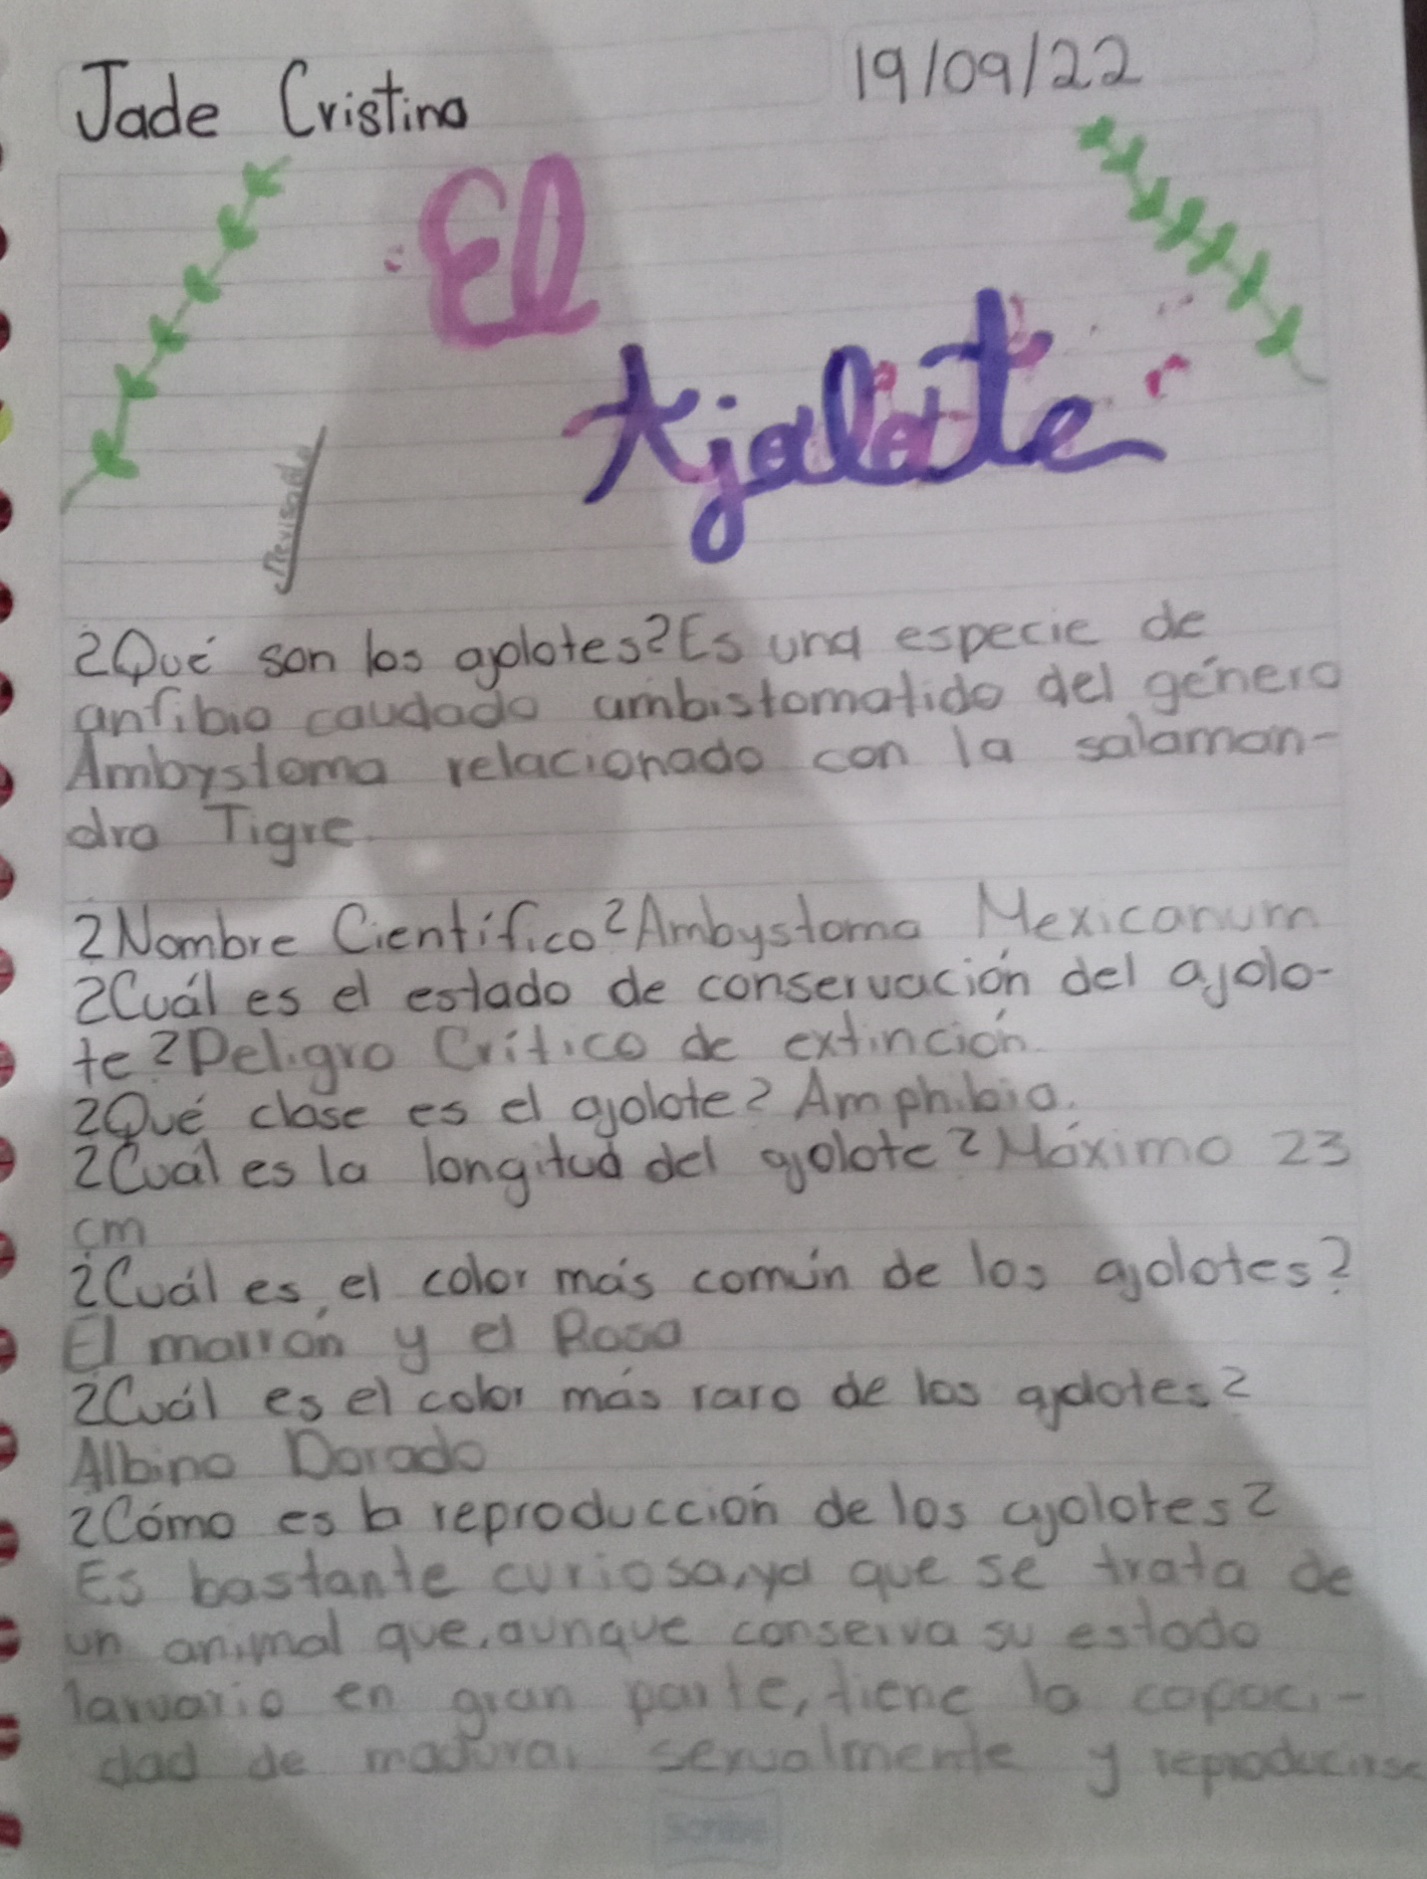 Jade Cristina
19/09/22
El
Ajolote
Revisado
¿Qué son los ajolotes? Es una especie de
anfibio caudado ambistomatido del género
Ambystoma relacionado con la salaman-
dra Tigre.
¿Nombre Científico? Ambystoma Mexicanum
¿Cuál es el estado de conservación del ajolo-
te? Peligro Crítico de extinción.
¿Qué clase es el ajolote? Amphibia.
¿Cuál es la longitud del ajolote? Máximo 23
cm
¿Cuál es, el color más común de los ajolotes?
El marrón y el Rosa
¿Cuál es el color más raro de los ajolotes?
Albino Dorado
¿Cómo es la reproducción de los ajolotes?
Es bastante curiosa, ya que se trata de
un animal que, aunque conserva su estado
larvario en gran parte, tiene la capaci-
dad de madurar sexualmente y reproducirse
Scribe